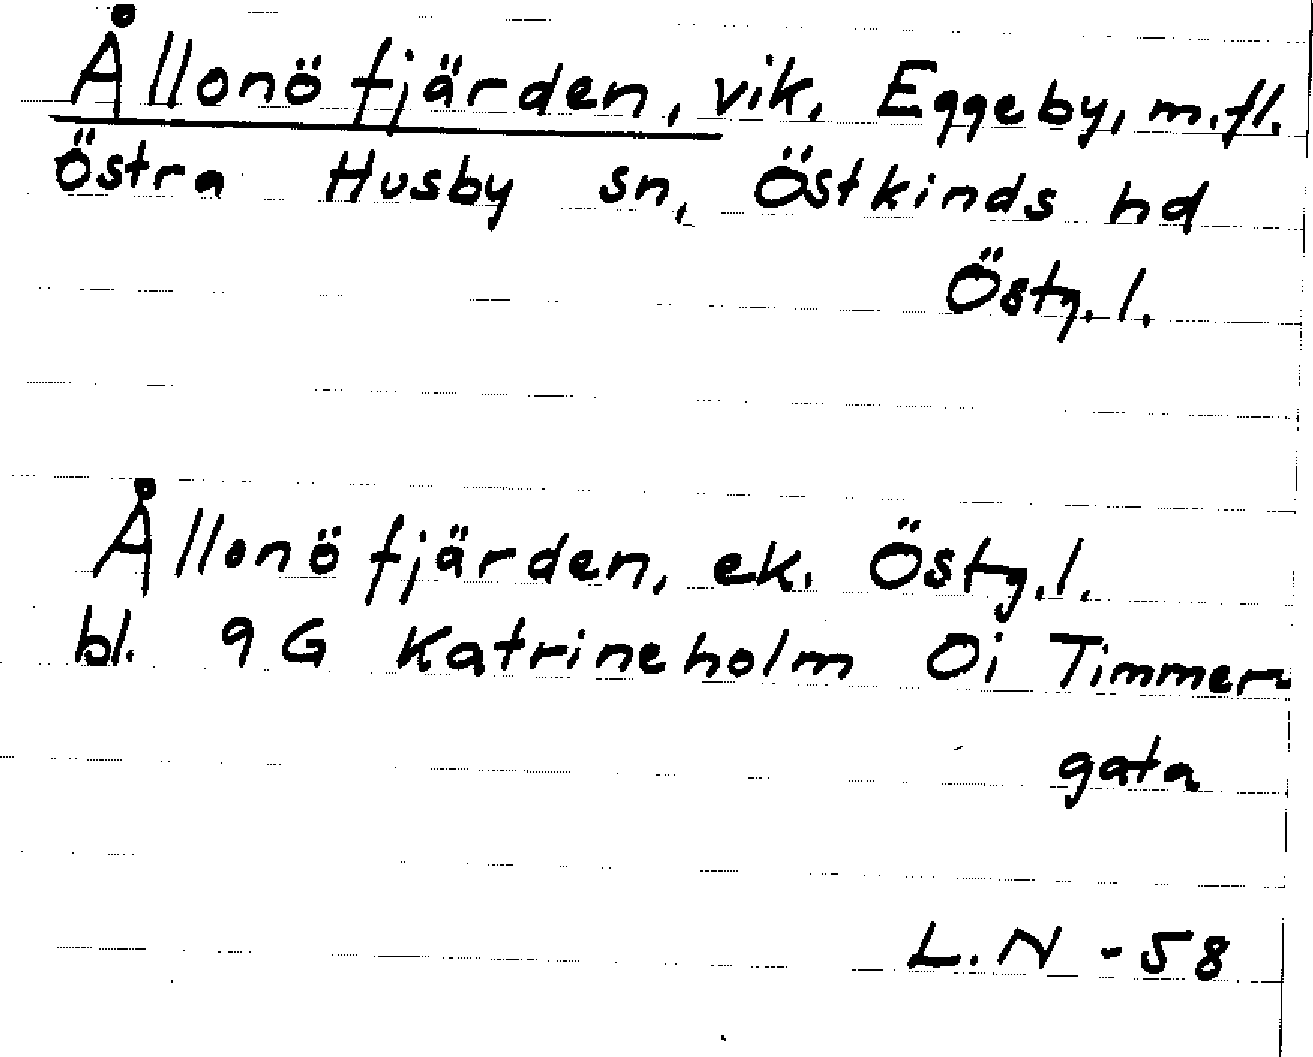 Ållonöfjärden, vik, Eggeby, m.fl.
Östra Husby sn, Östkinds hd
Östg.l.
Ållonöfjärden, ek. Östg.l.
bl. 9G Katrineholm Oi Timmer-
gata
L.N -58